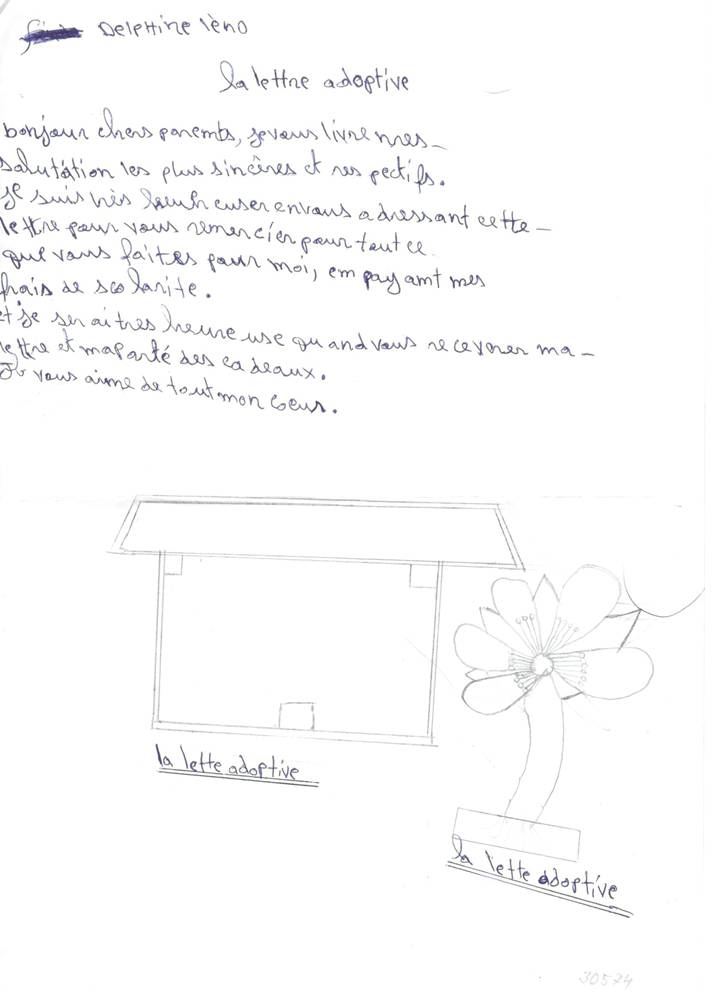 Delphine lèno
la lettre adoptive
bonjour chers parents, je vous livre mes-
salutátion les plus sincères et res pectifs.
Je suis très heureuse en vous adressant cette-
lettre pour vous remercier pour tout ce
que vous faites pour moi, em payamt mes
frais de scolarite.
et je serai tres heureuse quand vous recevrer ma-
lettre et maparté des cadeaux.
Je vous aime de tout mon coeur.
la lette adoptive
la lette adoptive
30574